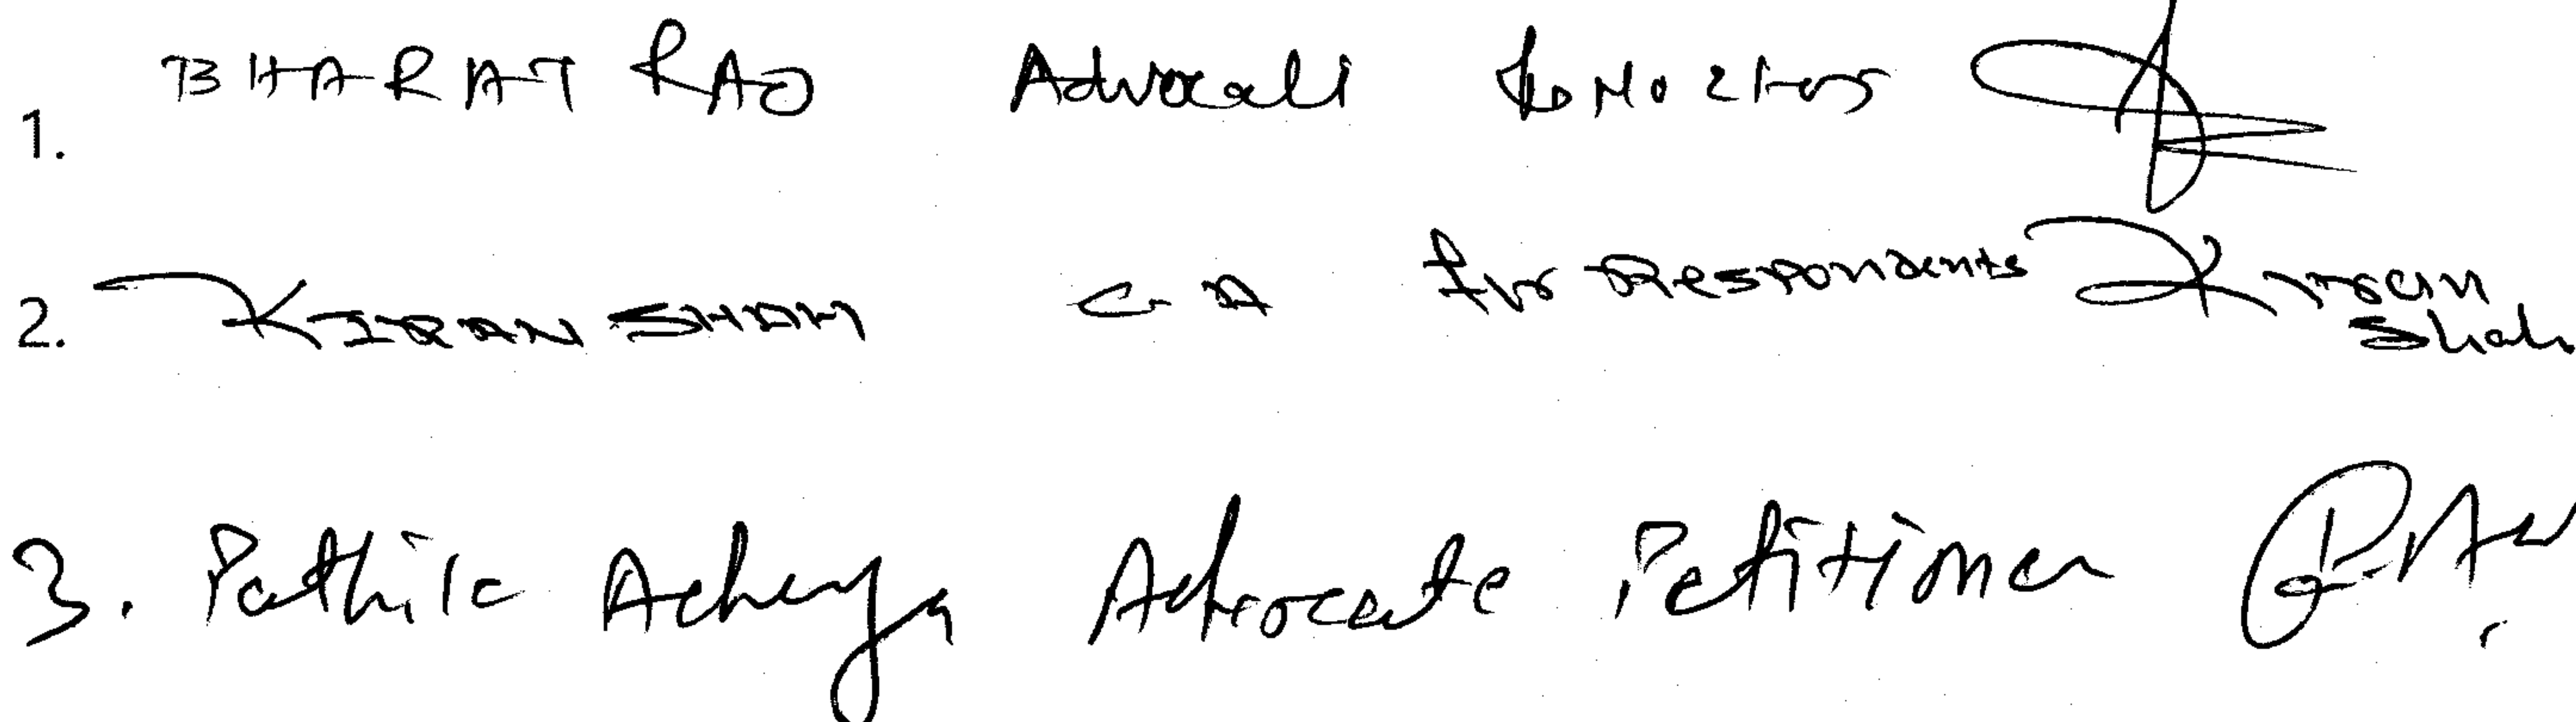 1. BHARAT RAO Advocate R No 2
2. KIRAN SHAH C A for Respondents Kiran Shah
3. Pathik Acharya Advocate Petitioner